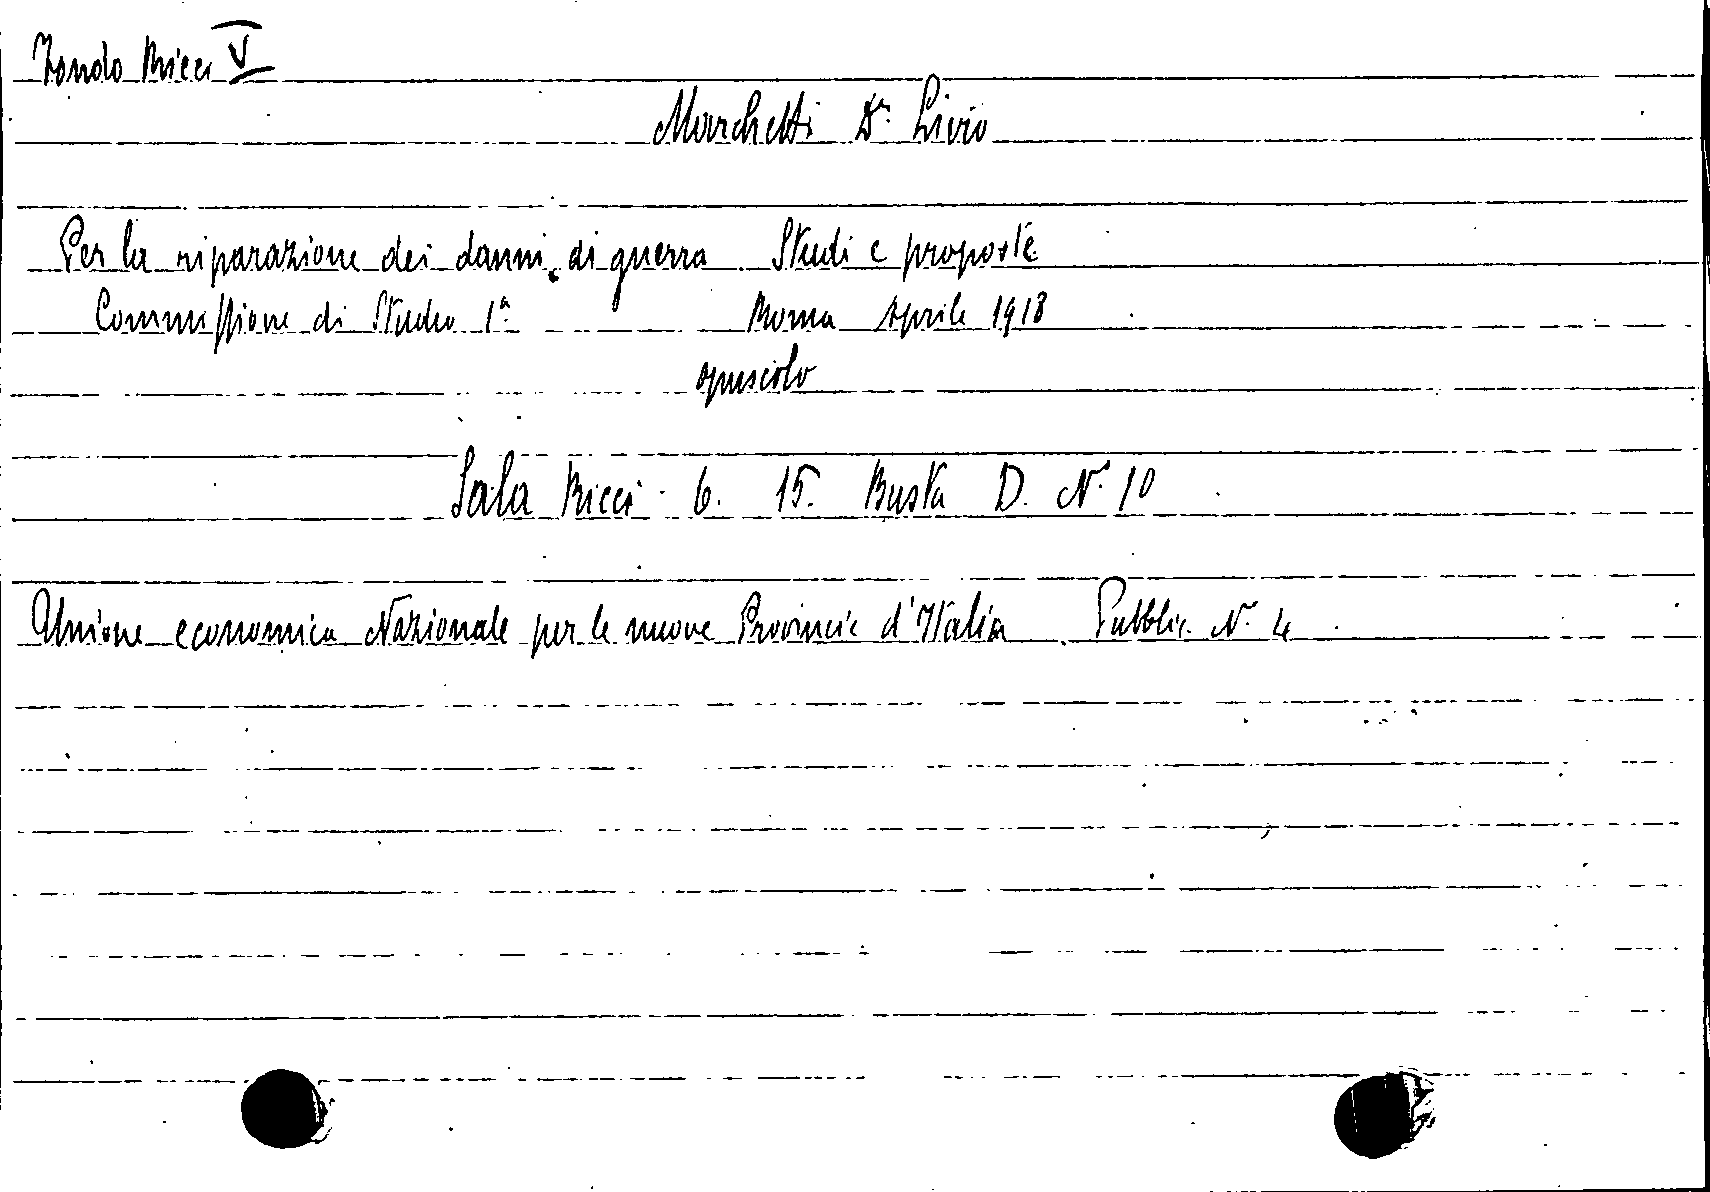 Fondo Ricci V
Marchetti Dr. Livio
Per la riparazione dei danni di guerra Studi e proposte
Commissione di Studio 1a Roma Aprile 1918
opuscolo
Sala Ricci 6. 15. Busta D. N. 10
Unione economica Nazionale per le nuove Provincie d'Italia Pubblic. N. 4